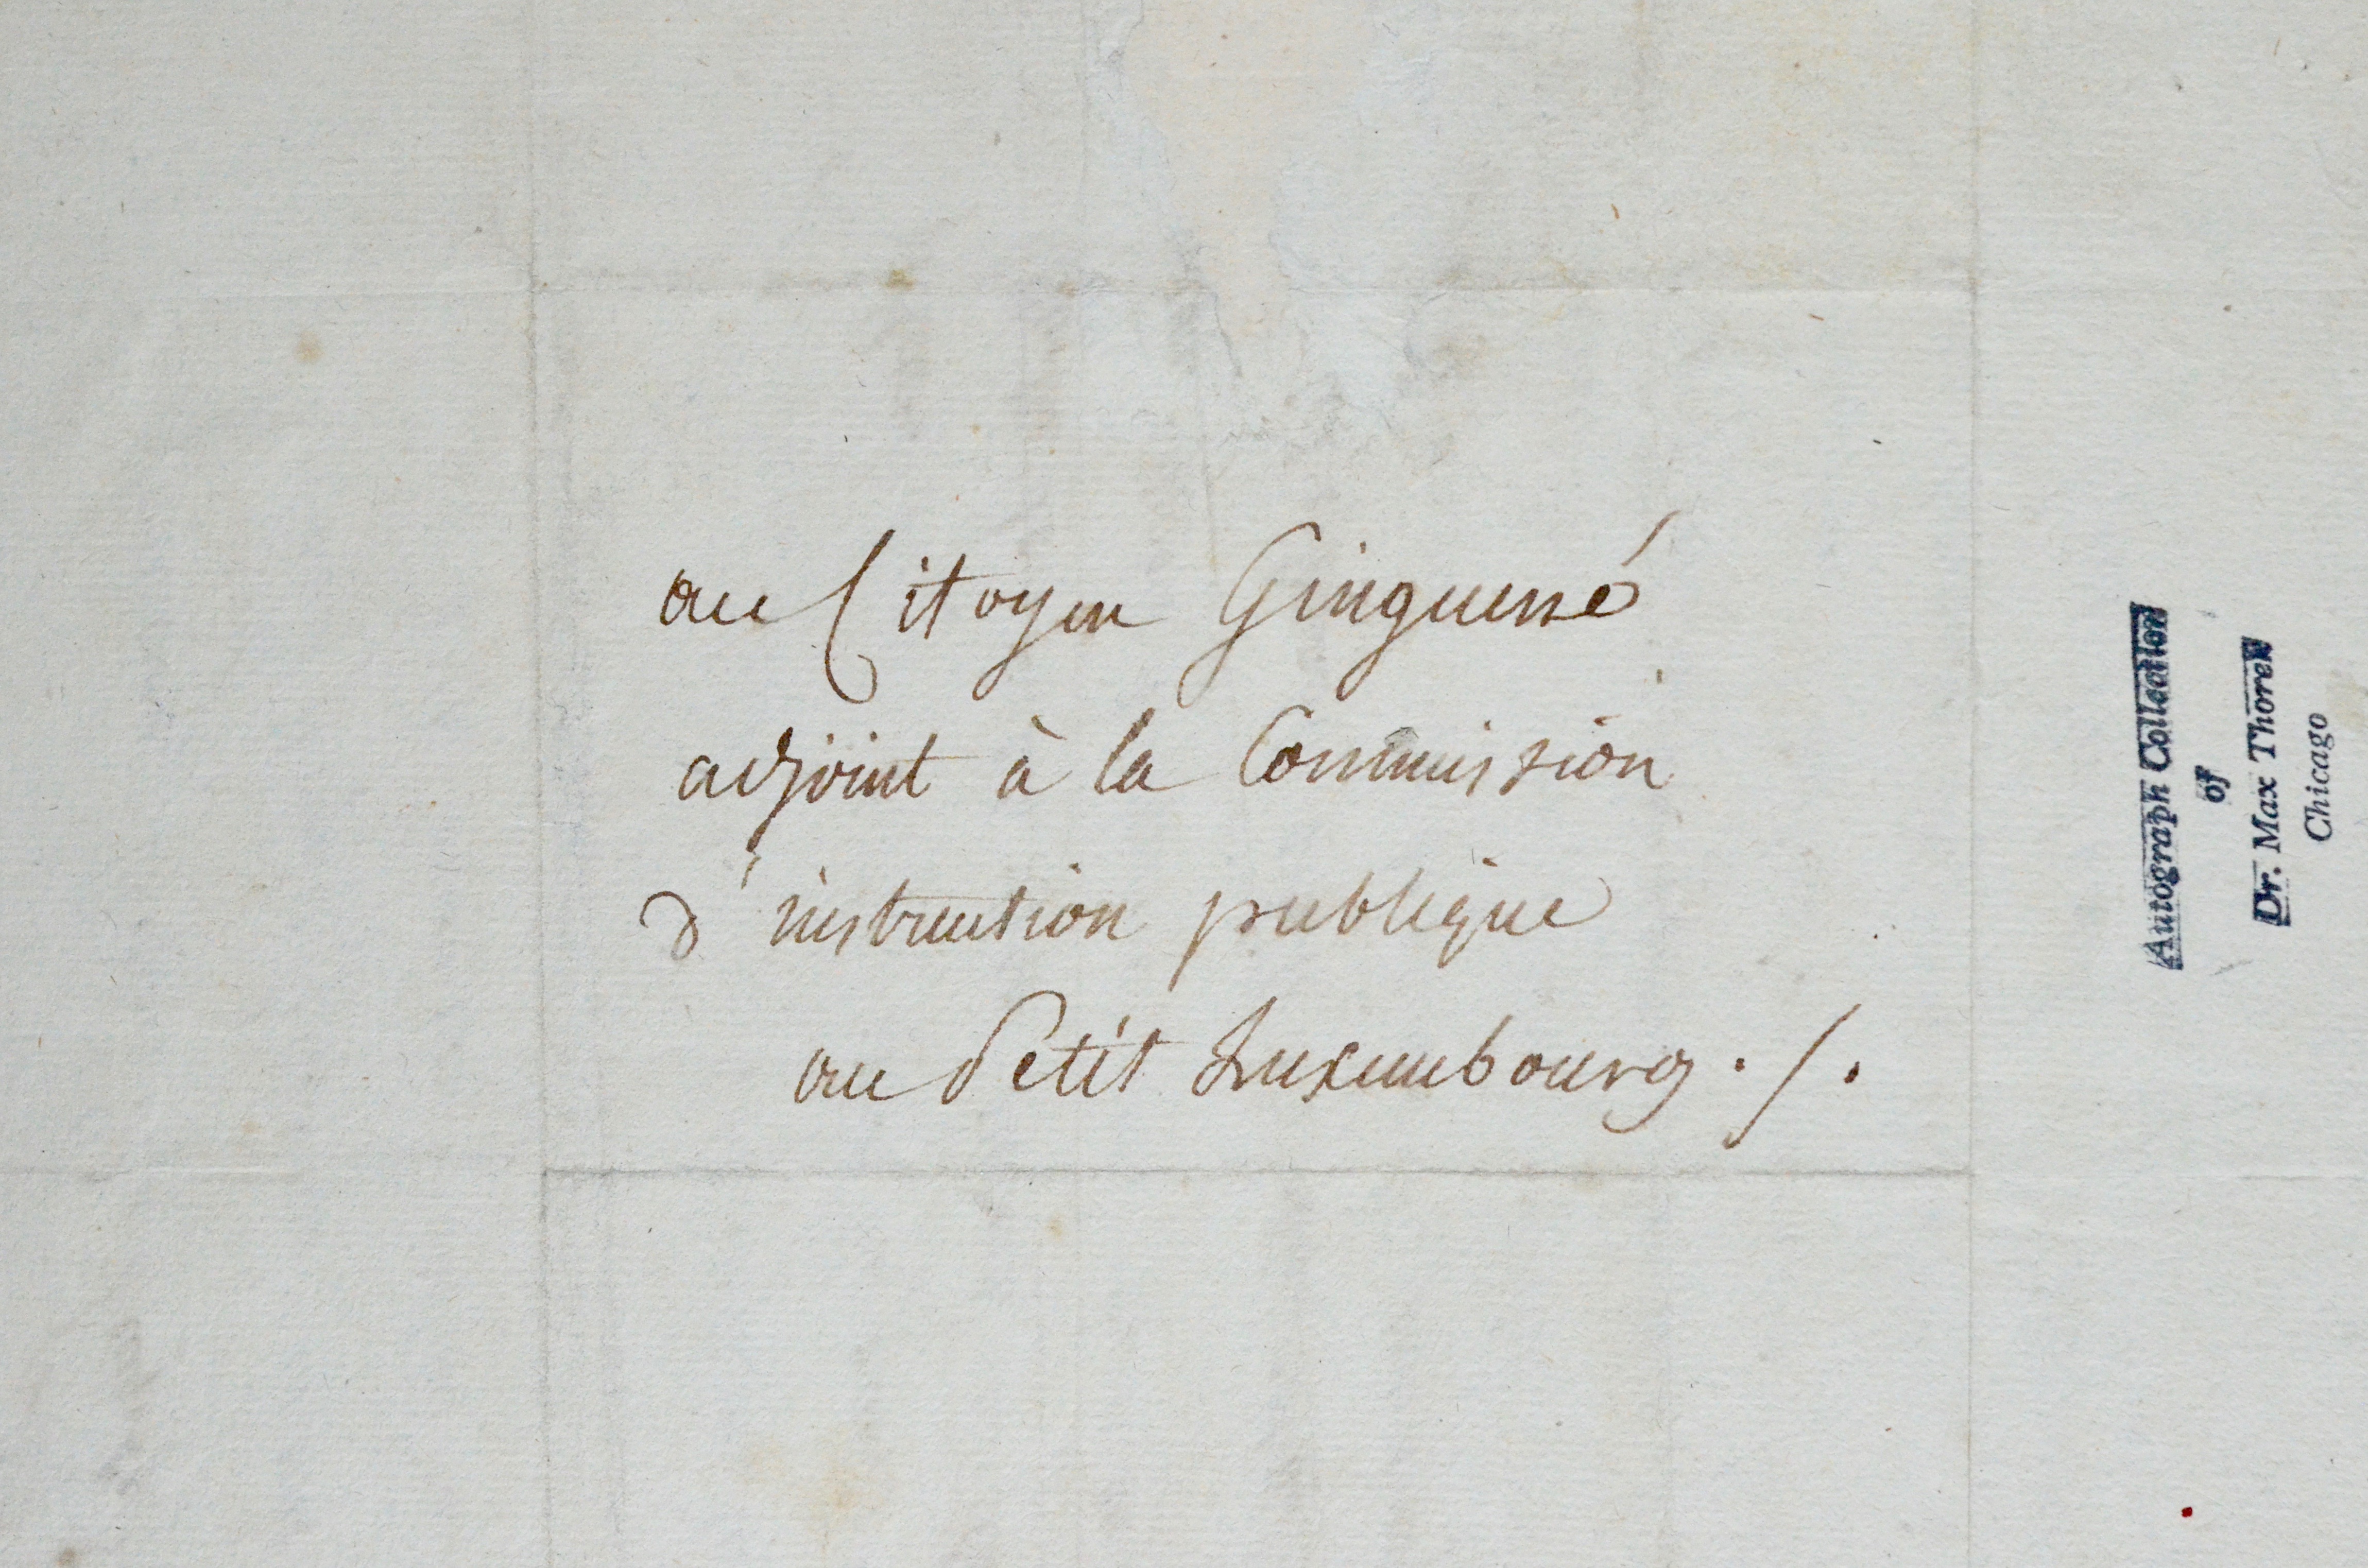 au Citoyen Ginguené
adjoint à la Commission
d'instruction publique
au Petit Luxembourg ./.
Autograph Collection
of
Dr. Max Thorek
Chicago